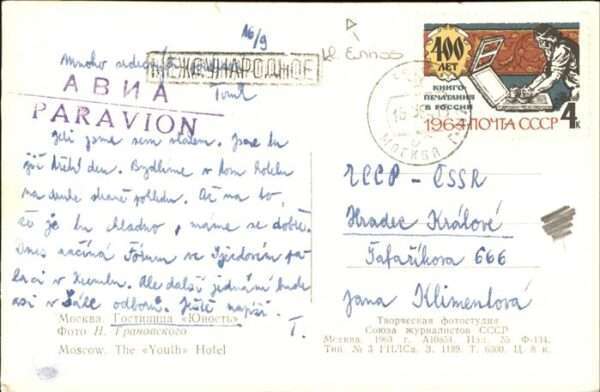 16/9
Mnoho srdečných
МЕЖДУНАРОДНОЕ
АВИА
PAR AVION
Jeli jsme sem vlakem. Jsme tu
již třetí den. Bydlíme v tom hotelu
na druhé straně pohledu. Až na to,
že je tu chladno, máme se dobře.
Dnes začíná Fórum ve Sjezdovém pa-
láci v Kremlu. Ale další jednání bude
asi v Sále odborů. Ještě napíši.
T.
Москва. Гостиница «Юность»
Фото Н. Грановского
Moscow. The «Youth» Hotel
400
ЛЕТ
КНИГО-
ПЕЧАТАНИЯ
В РОССИИ
1964 ПОЧТА СССР 4к
МОСКВА
ЧССР - ČSSR
Hradec Králové
Šafaříkova 666
Jana Klimentová
Творческая фотостудия
Союза журналистов СССР
Москва. 1963 г. Изд. 25 Ф-134.
Тип. № 3 Ц. 8 к.